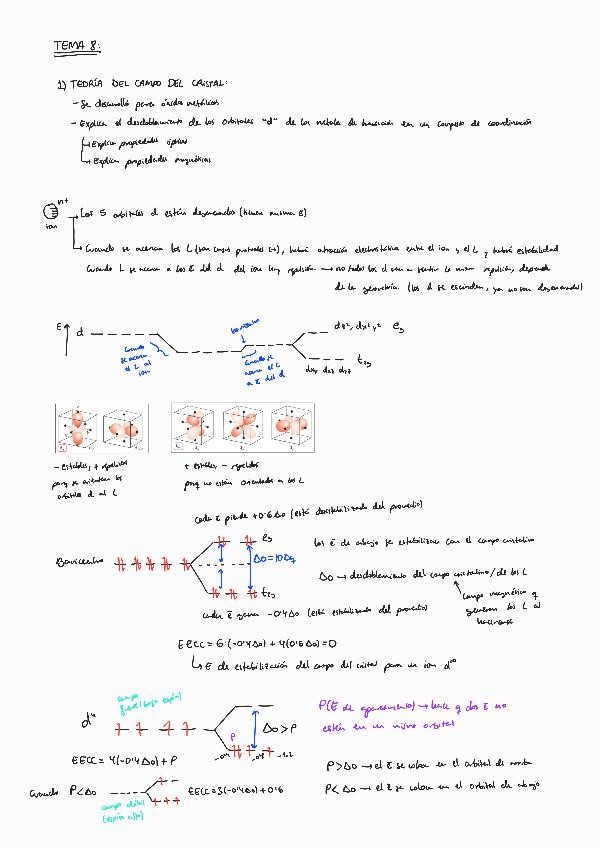 TEMA 8:
1) TEORÍA DEL CAMPO DEL CRISTAL:
- Se desarrolló para óxidos metálicos
- Explica el desdoblamiento de los orbitales "d" de los metales de transición en un compuesto de coordinación
Explica propiedades ópticas
Explica propiedades magnéticas
ion
Los 5 orbitales d están degenerados (tienen misma E)
Cuando se acercan los L (son cargas puntuales (-)), habrá atracción electrostática entre el ion y el L y habrá estabilidad
Cuando L se acerca a los e̅ del d del ion hay repulsión. → no todos los d van a sentir la misma repulsión, depende
de la geometría. (los d se escinden, ya no son degenerados)
E d
Baricentro
dz², dx²y² eg
Cuando se acerca el L al ion
Cuando se acerca el L a e̅ del d
t2g
dxy dxz dyz
- estables, + repelidos
porq se orientan los
orbitales d al L
+ estables, - repelidos
porq no están orientados a los L
cada e̅ pierde +0'6Δo (está desestabilizado del promedio)
eg
Baricentro
Δo = 10Dq
t2g
los e̅ de abajo se estabilizan con el campo cristalino
Δo → desdoblamiento del campo cristalino/de los L
campo magnético q
generan los L al
acercarse
cada e̅ gana -0'4Δo (está estabilizado del promedio)
EECC = 6·(-0'4Δo) + 4(0'6Δo) = 0
E de estabilización del campo del cristal para un ion d¹⁰
campo
fuerte (bajo espín)
d⁴
P
Δo > P
-0'4 -0'8 -1'2
EECC = 4(-0'4Δo) + P
P(E de apareamiento) → hace q dos e̅ no
estén en un mismo orbital
P > Δo → el e̅ se coloca en el orbital de arriba
P < Δo → el e̅ se coloca en el orbital de abajo
Cuando P < Δo
EECC = 3(-0'4Δo) + 0'6
campo débil
(espín alto)